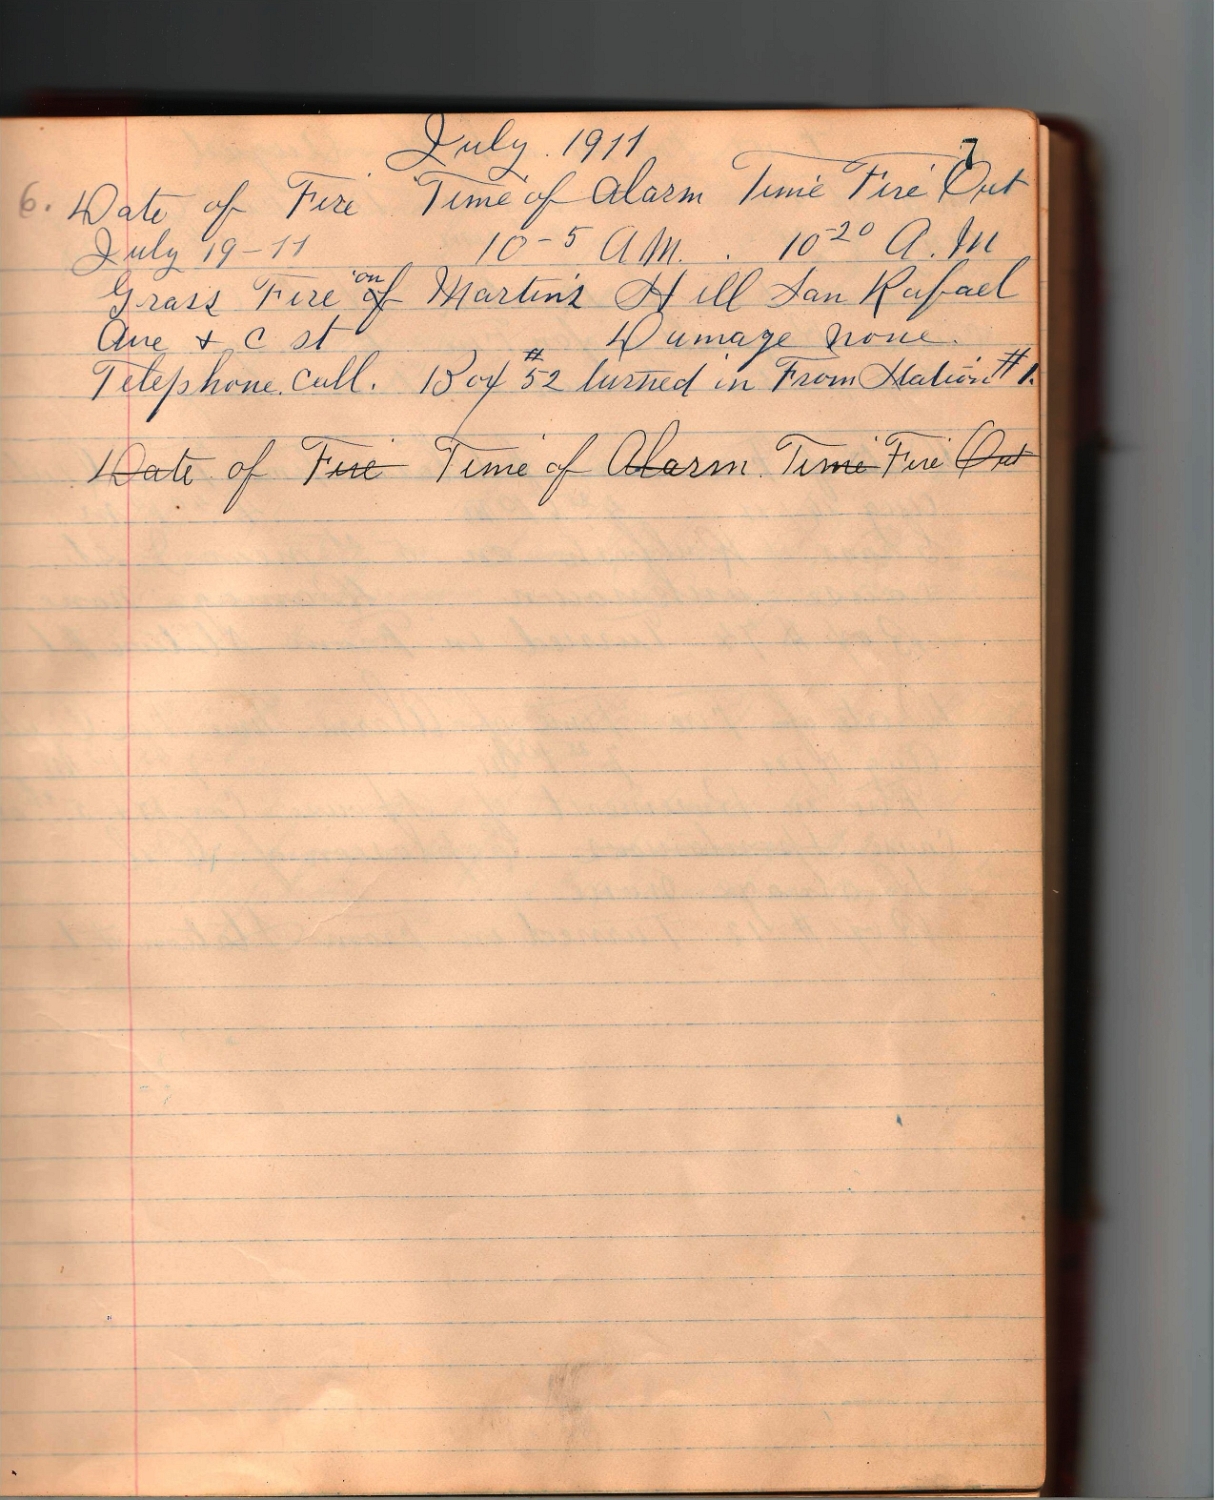 July. 1911
7
6. Date of Fire Time of Alarm Time Fire Out
July 19-11 10-5 A.M. . 10-20 A.M
Grass Fire on of Martins Hill San Rafael
Ave + C st Damage none.
Telephone. call. Box #52 turned in From Station #1.
Date of Fire Time of Alarm. Time Fire Out